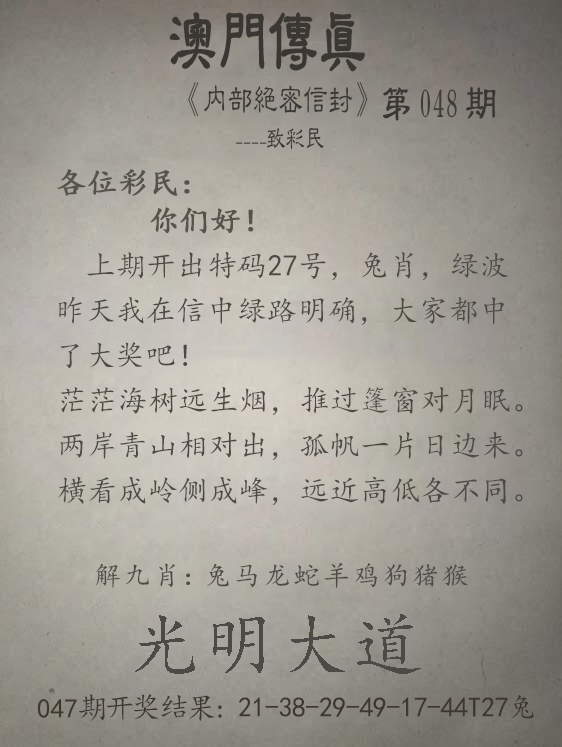 澳門傳真
《内部絕密信封》第048期
----致彩民
各位彩民：
你们好！
上期开出特码27号，兔肖，绿波
昨天我在信中绿路明确，大家都中
了大奖吧！
茫茫海树远生烟，推过篷窗对月眠。
两岸青山相对出，孤帆一片日边来。
横看成岭侧成峰，远近高低各不同。
解九肖：兔马龙蛇羊鸡狗猪猴
光明大道
047期开奖结果：21-38-29-49-17-44T27兔